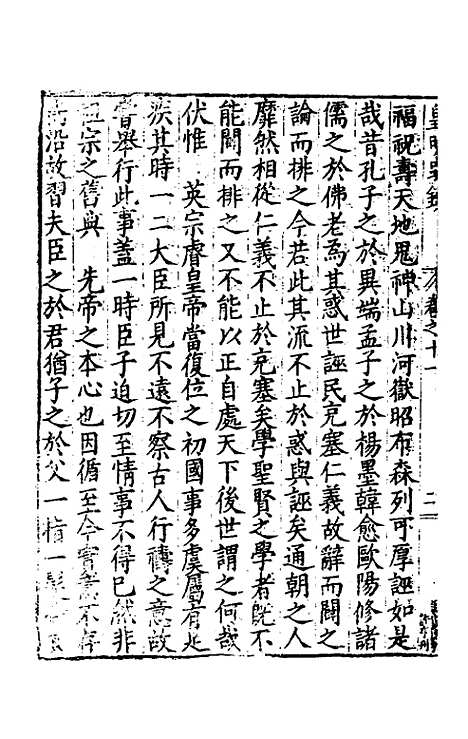 福祝壽天地鬼神山川河嶽昭布森列可厚誣如是
哉昔孔子之於異端孟子之於楊墨韓愈歐陽修諸
儒之於佛老爲其惑世誣民充塞仁義故辭而闢之
論而排之今若此其流不止於惑與誣矣通朝之人
靡然相從仁義不止於充塞矣學聖賢之學者既不
能闢而排之又不能以正自處天下後世謂之何哉
伏惟 英宗睿皇帝當復位之初國事多虞屬有足
疾其時一二大臣所見不遠不察古人行禱之意故
嘗舉行此事蓋一時臣子迫切至情事不得已然非
祖宗之舊與 先帝之本心也因循至今實
沿故習夫臣之於君猶子之於父一指一髮
皇明
卷之十一
二